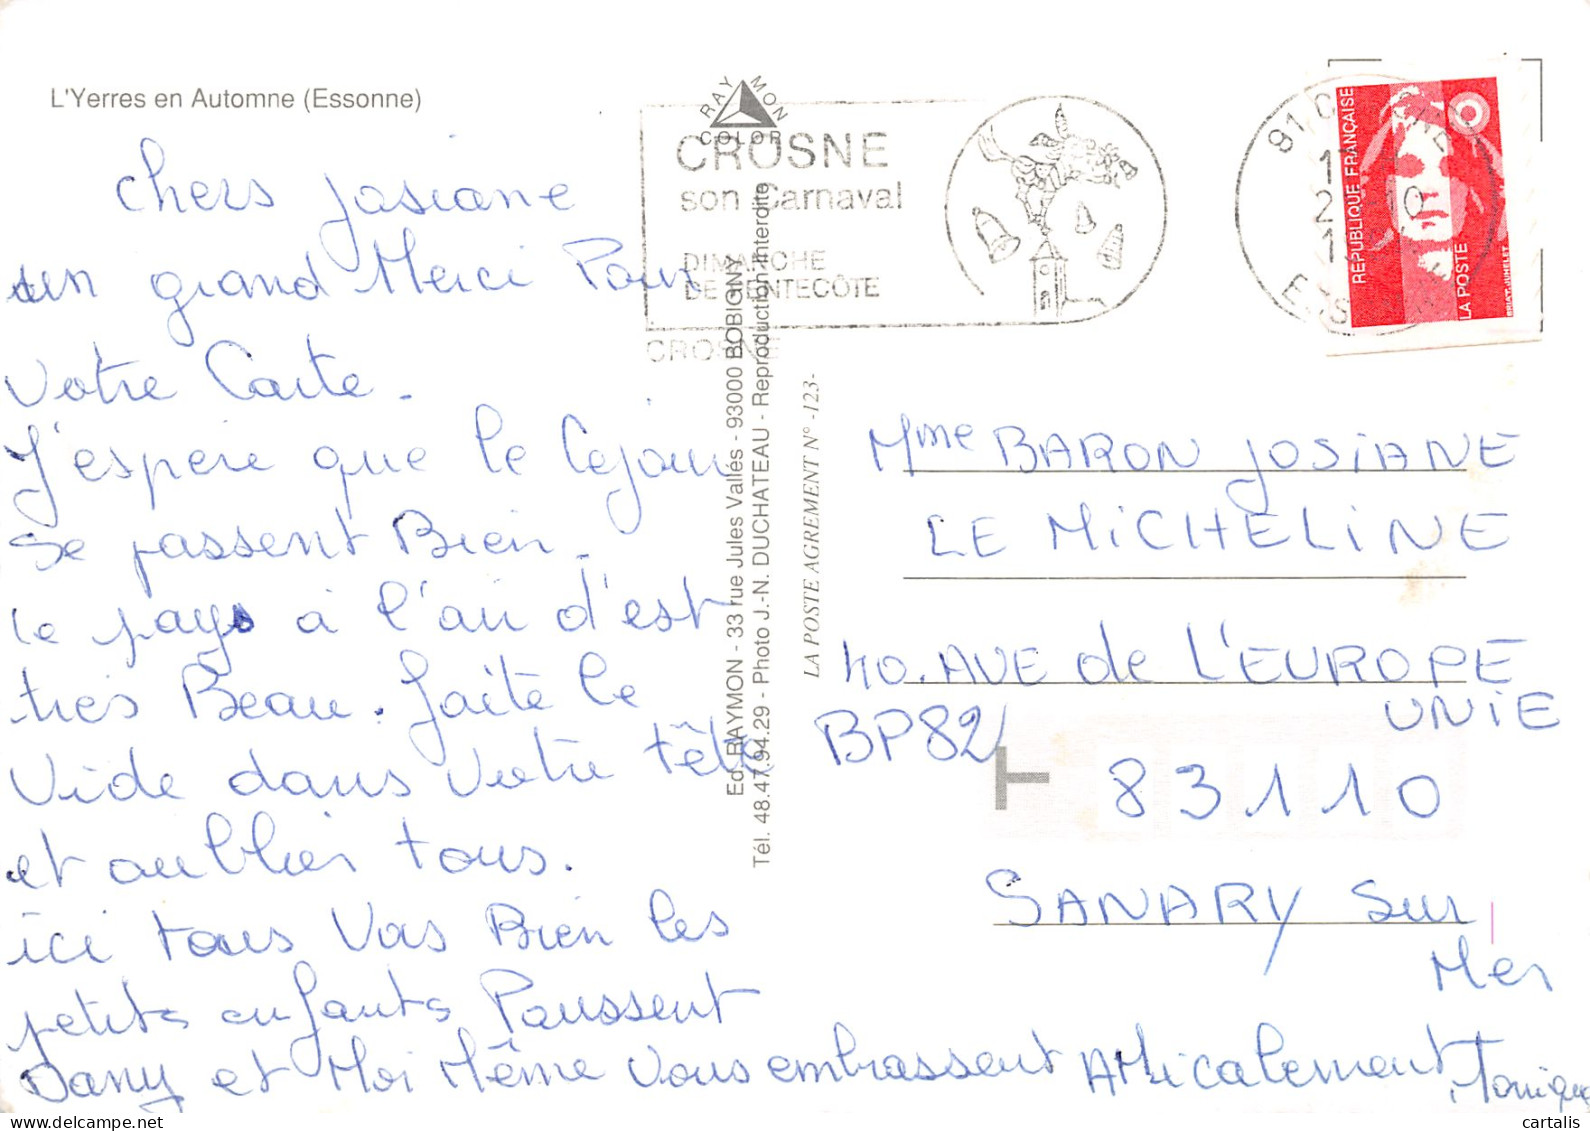 L'Yerres en Automne (Essonne)
chers Josiane
un grand Merci Pour
Votre Carte.
J'espere que le Cejour
Se passent Bien.
le pays à l'air d'est
tres Beau. faite le
Vide dans Votre tête
et oublier tous.
ici tous Vas Bien les
petits enfants Poussent
Dany et Moi Même Vous embrassent AMicalement
RAYMON
COLOR
CROSNE
son Carnaval
DIMANCHE
DE PENTECÔTE
CROSNE
Ed. RAYMON - 33 rue Jules Vallés - 93000 BOBIGNY
Tél. 48.47.94.29 - Photo J.-N. DUCHATEAU - Reproduction interdite
LA POSTE AGREMENT N° -123-
REPUBLIQUE FRANÇAISE
LA POSTE
BRIAT-JUMELET
Mme BARON JOSIANE
LE MICHELINE
40. AVE de L'EUROPE
UNIE
BP82
83110
SANARY Sur
Mer
cartalis
www.delcampe.net